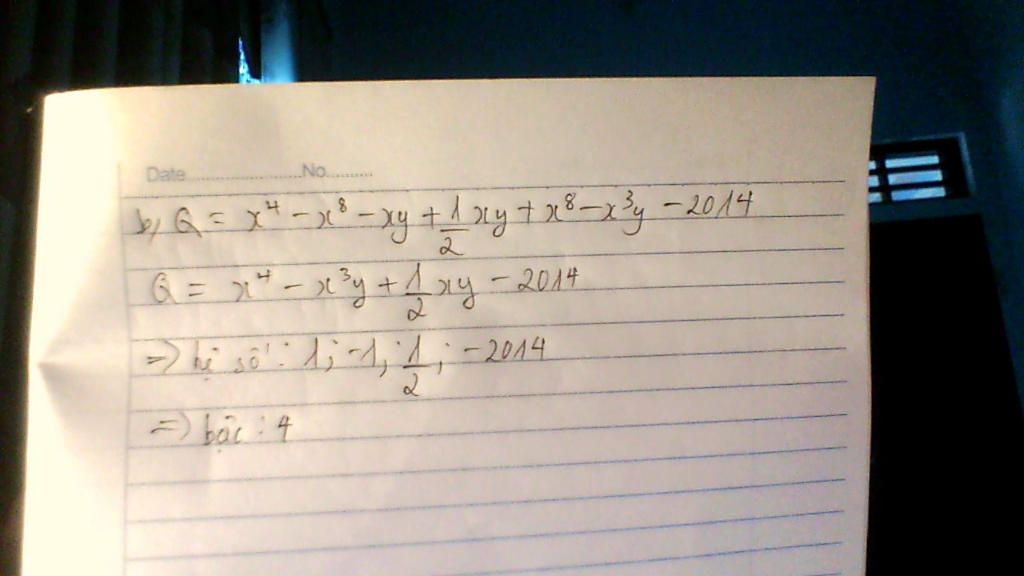 Date........................No..........
b, Q = x⁴ - x⁸ - xy + 1/2 xy + x⁸ - x³y - 2014
Q = x⁴ - x³y + 1/2 xy - 2014
=) hệ số : 1; -1; 1/2; -2014
=) bậc : 4